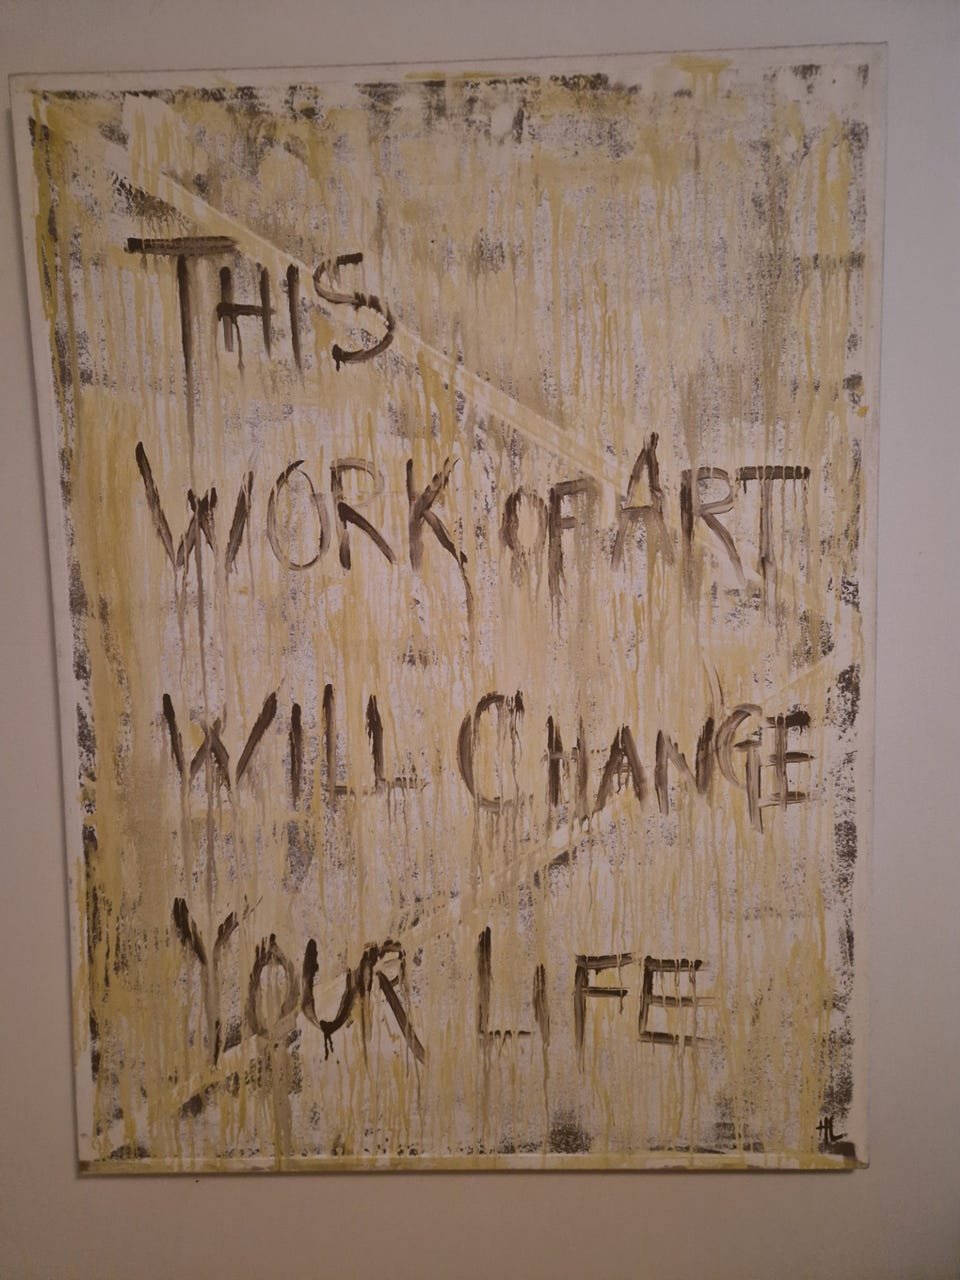 THIS
WORK OF ART
WILL CHANGE
YOUR LIFE
HL